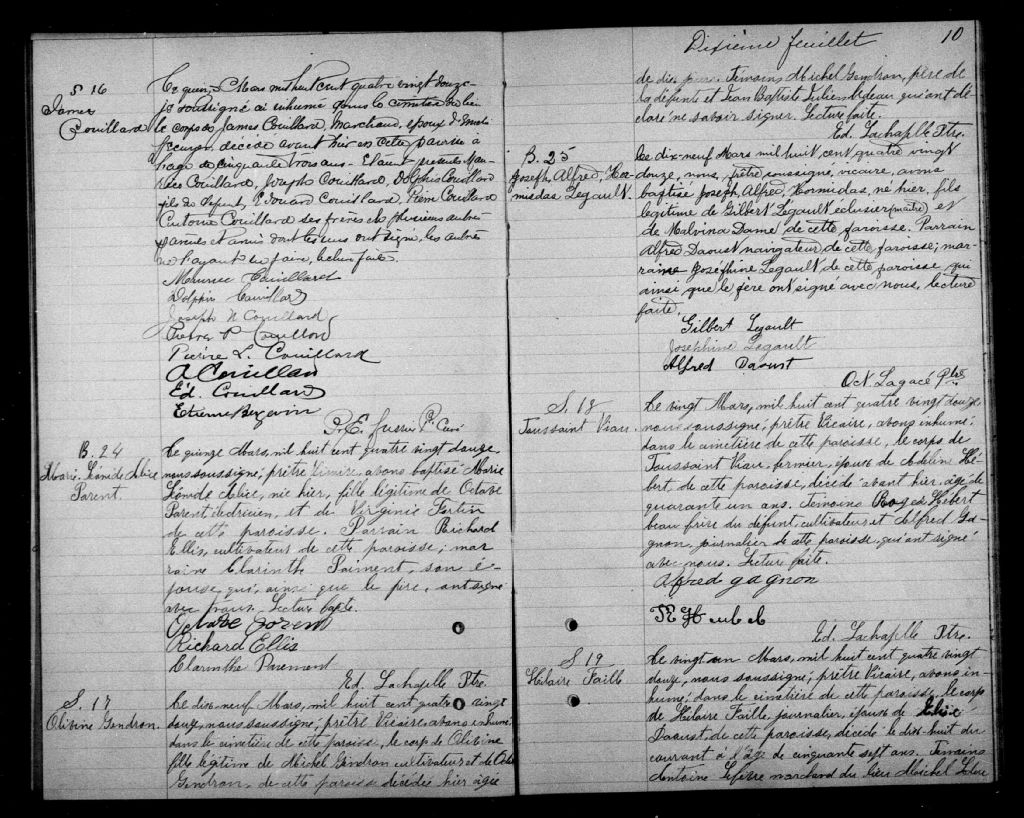 S 16
James
Couillard
Ce quinze Mars mil huit cent quatre vingt douze
je soussigné ai inhumé dans le cimetière de ce lieu
le corps de James Couillard, Marchand, époux d'
décédé avant hier en cette paroisse à
l'age de cinquante trois ans. Etaient présents Mau-
rice Couillard, Joseph Couillard, Dolphis Couillard
fils du défunt, Edouard Couillard, Pierre Couillard
Antoine Couillard ses frères et plusieurs autres
parents et amis dont les uns ont signé, les autres
ne l'ayant pu faire, lecture faite.
Maurice Couillard
Dolphis Couillard
Joseph N Couillard
Pierre P Couillard
Pierre L. Couillard
A Couillard
Ed. Couillard
Etienne
Ptre Curé
B. 24
Marie Léonide Alice
Parent.
Le quinze Mars, mil huit cent quatre vingt douze,
nous soussigné, prêtre Vicaire, avons baptisé Marie
Léonide Alice, née hier, fille légitime de Octave
Parent et de Virginie Fortin
de cette paroisse. Parrain Richard
Ellis, cultivateur de cette paroisse; mar
raine Clarinthe Paiment, son é-
pouse qui, ainsi que le père, ont signé
avec nous. Lecture faite.
Octave Parent
Richard Ellis
Clarinthe Parement
Ed. Lachapelle Ptre.
S. 17
Olivine Gendron.
Le dix-neuf Mars, mil huit cent quatre vingt
douze, nous soussigné, prêtre Vicaire, avons inhumé
dans le cimetière de cette paroisse, le corps de Olivine
fille légitime de Michel Gendron cultivateur et de
Gendron, de cette paroisse décédée hier agée
Dixième feuillet
10
de dix Temoins Michel Gendron, père de
la défunte et Jean Baptiste qui ont dé-
claré ne savoir signer. Lecture faite.
Ed. Lachapelle Ptre.
B. 25
Joseph, Alfred, Hor-
midas Legault.
Le dix-neuf Mars mil huit cent quatre vingt
douze, nous, prêtre soussigné, vicaire, avons
baptisé Joseph, Alfred, Hormidas, né hier, fils
légitime de Gilbert Legault éclusier (maître) et
de Malvina Dame de cette paroisse. Parrain
Alfred Daoust navigateur de cette paroisse; mar-
raine Josephine Legault de cette paroisse qui
ainsi que le père ont signé avec nous. Lecture
faite.
Gilbert Legault
Josephine Legault
Alfred Daoust
Oct. Lagacé Ptre
S. 18
Toussaint Viau.
Le vingt Mars, mil huit cent quatre vingt douze,
nous soussigné, prêtre Vicaire, avons inhumé,
dans le cimetière de cette paroisse, le corps de
Toussaint Viau, fermier, époux de Adeline Hé-
bert de cette paroisse, décédé avant hier, agé de
quarante un ans. Temoins Roger Hébert
beau frère du défunt, cultivateur et Alfred Ga-
gnon, journalier de cette paroisse, qui ont signé
avec nous. Lecture faite.
Alfred gagnon
R Heubeb
Ed. Lachapelle Ptre.
S 19
Hilaire Faille
Le vingt un Mars, mil huit cent quatre vingt
douze, nous soussigné, prêtre Vicaire, avons in-
humé dans le cimetière de cette paroisse, le corps
de Hilaire Faille, journalier, époux de Elise
Daoust de cette paroisse, décédé le dix-huit du
courant à l'age de cinquante sept ans. Temoins
Antoine Lefèvre marchand du lieu Michel